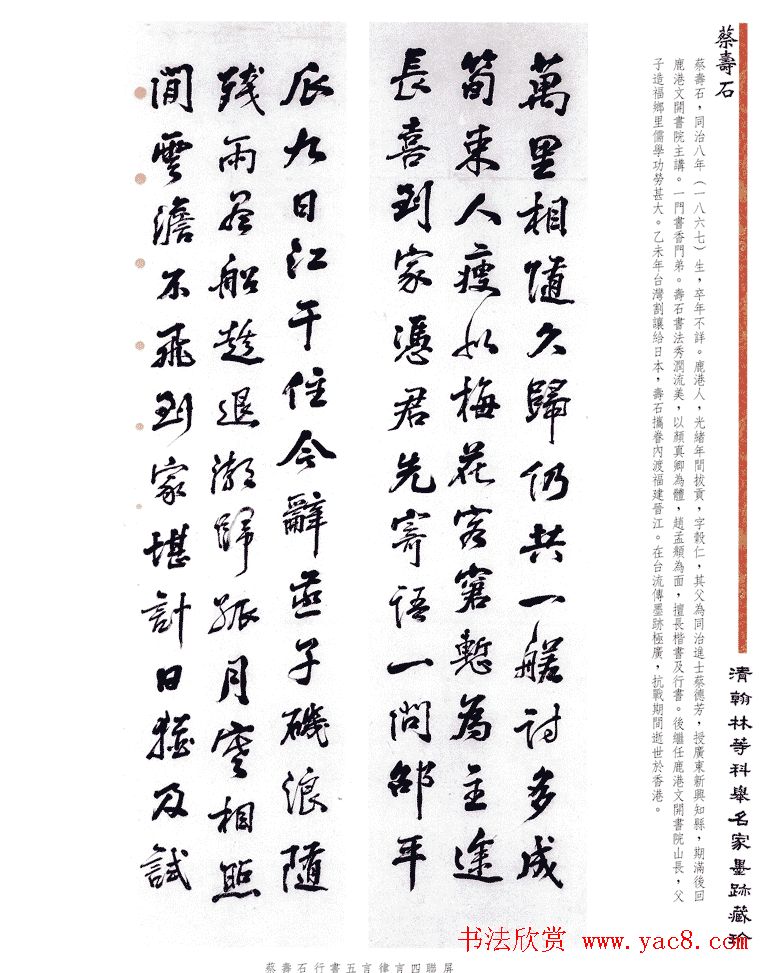 清翰林等科舉名家墨跡藏珍
蔡壽石
蔡壽石，同治八年（一八六七）生，卒年不詳。鹿港人，光緒年間拔貢，字穀仁，其父為同治進士蔡德芳，授廣東新興知縣，期滿後回
鹿港文開書院主講。一門書香門弟。壽石書法秀潤流美，以顏真卿為體，趙孟頫為面，擅長楷書及行書。後繼任鹿港文開書院山長，父
子造福鄉里儒學功勞甚大。乙未年台灣割讓給日本，壽石攜眷內渡福建晉江。在台流傳墨跡極廣，抗戰期間逝世於香港。
萬里相隨久歸仍共一艖詩多成
筍束人瘦如梅花客窘慙為主途
長喜到家憑君先寄語一問邵平
辰九日江干住今辭燕子磯浪隨
殘雨盡船趁退潮歸孤月寒相照
閒雲澹不飛到家堪計日猶及試
蔡壽石行書五言律言四聯屏
书法欣赏 www.yac8.com